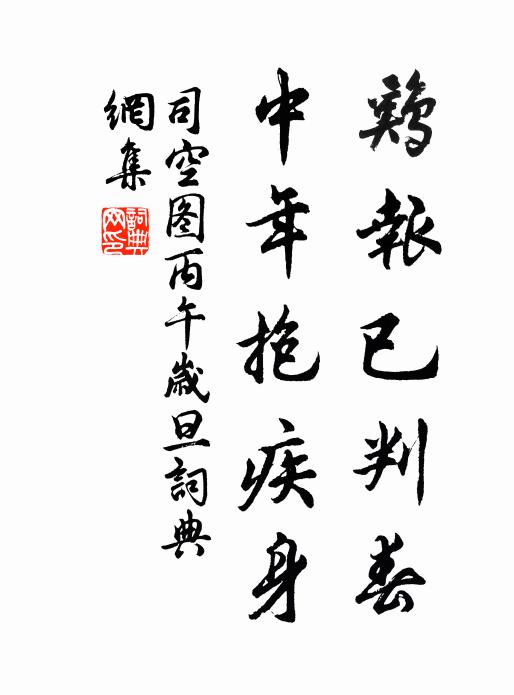 鷄報已判春
中年抱疾身
司空图丙午歲旦詞典
網集
詞典网印